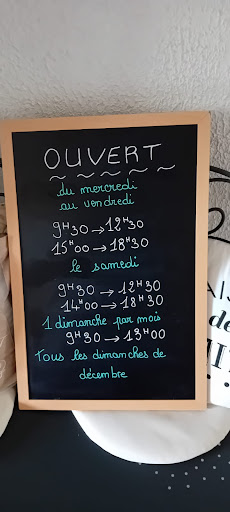 OUVERT
du mercredi
au vendredi
9H30 → 12H30
15H00 → 18H30
le samedi
9H30 → 12H30
14H00 → 18H30
1 dimanche par mois
9H30 → 13H00
Tous les dimanches de
décembre